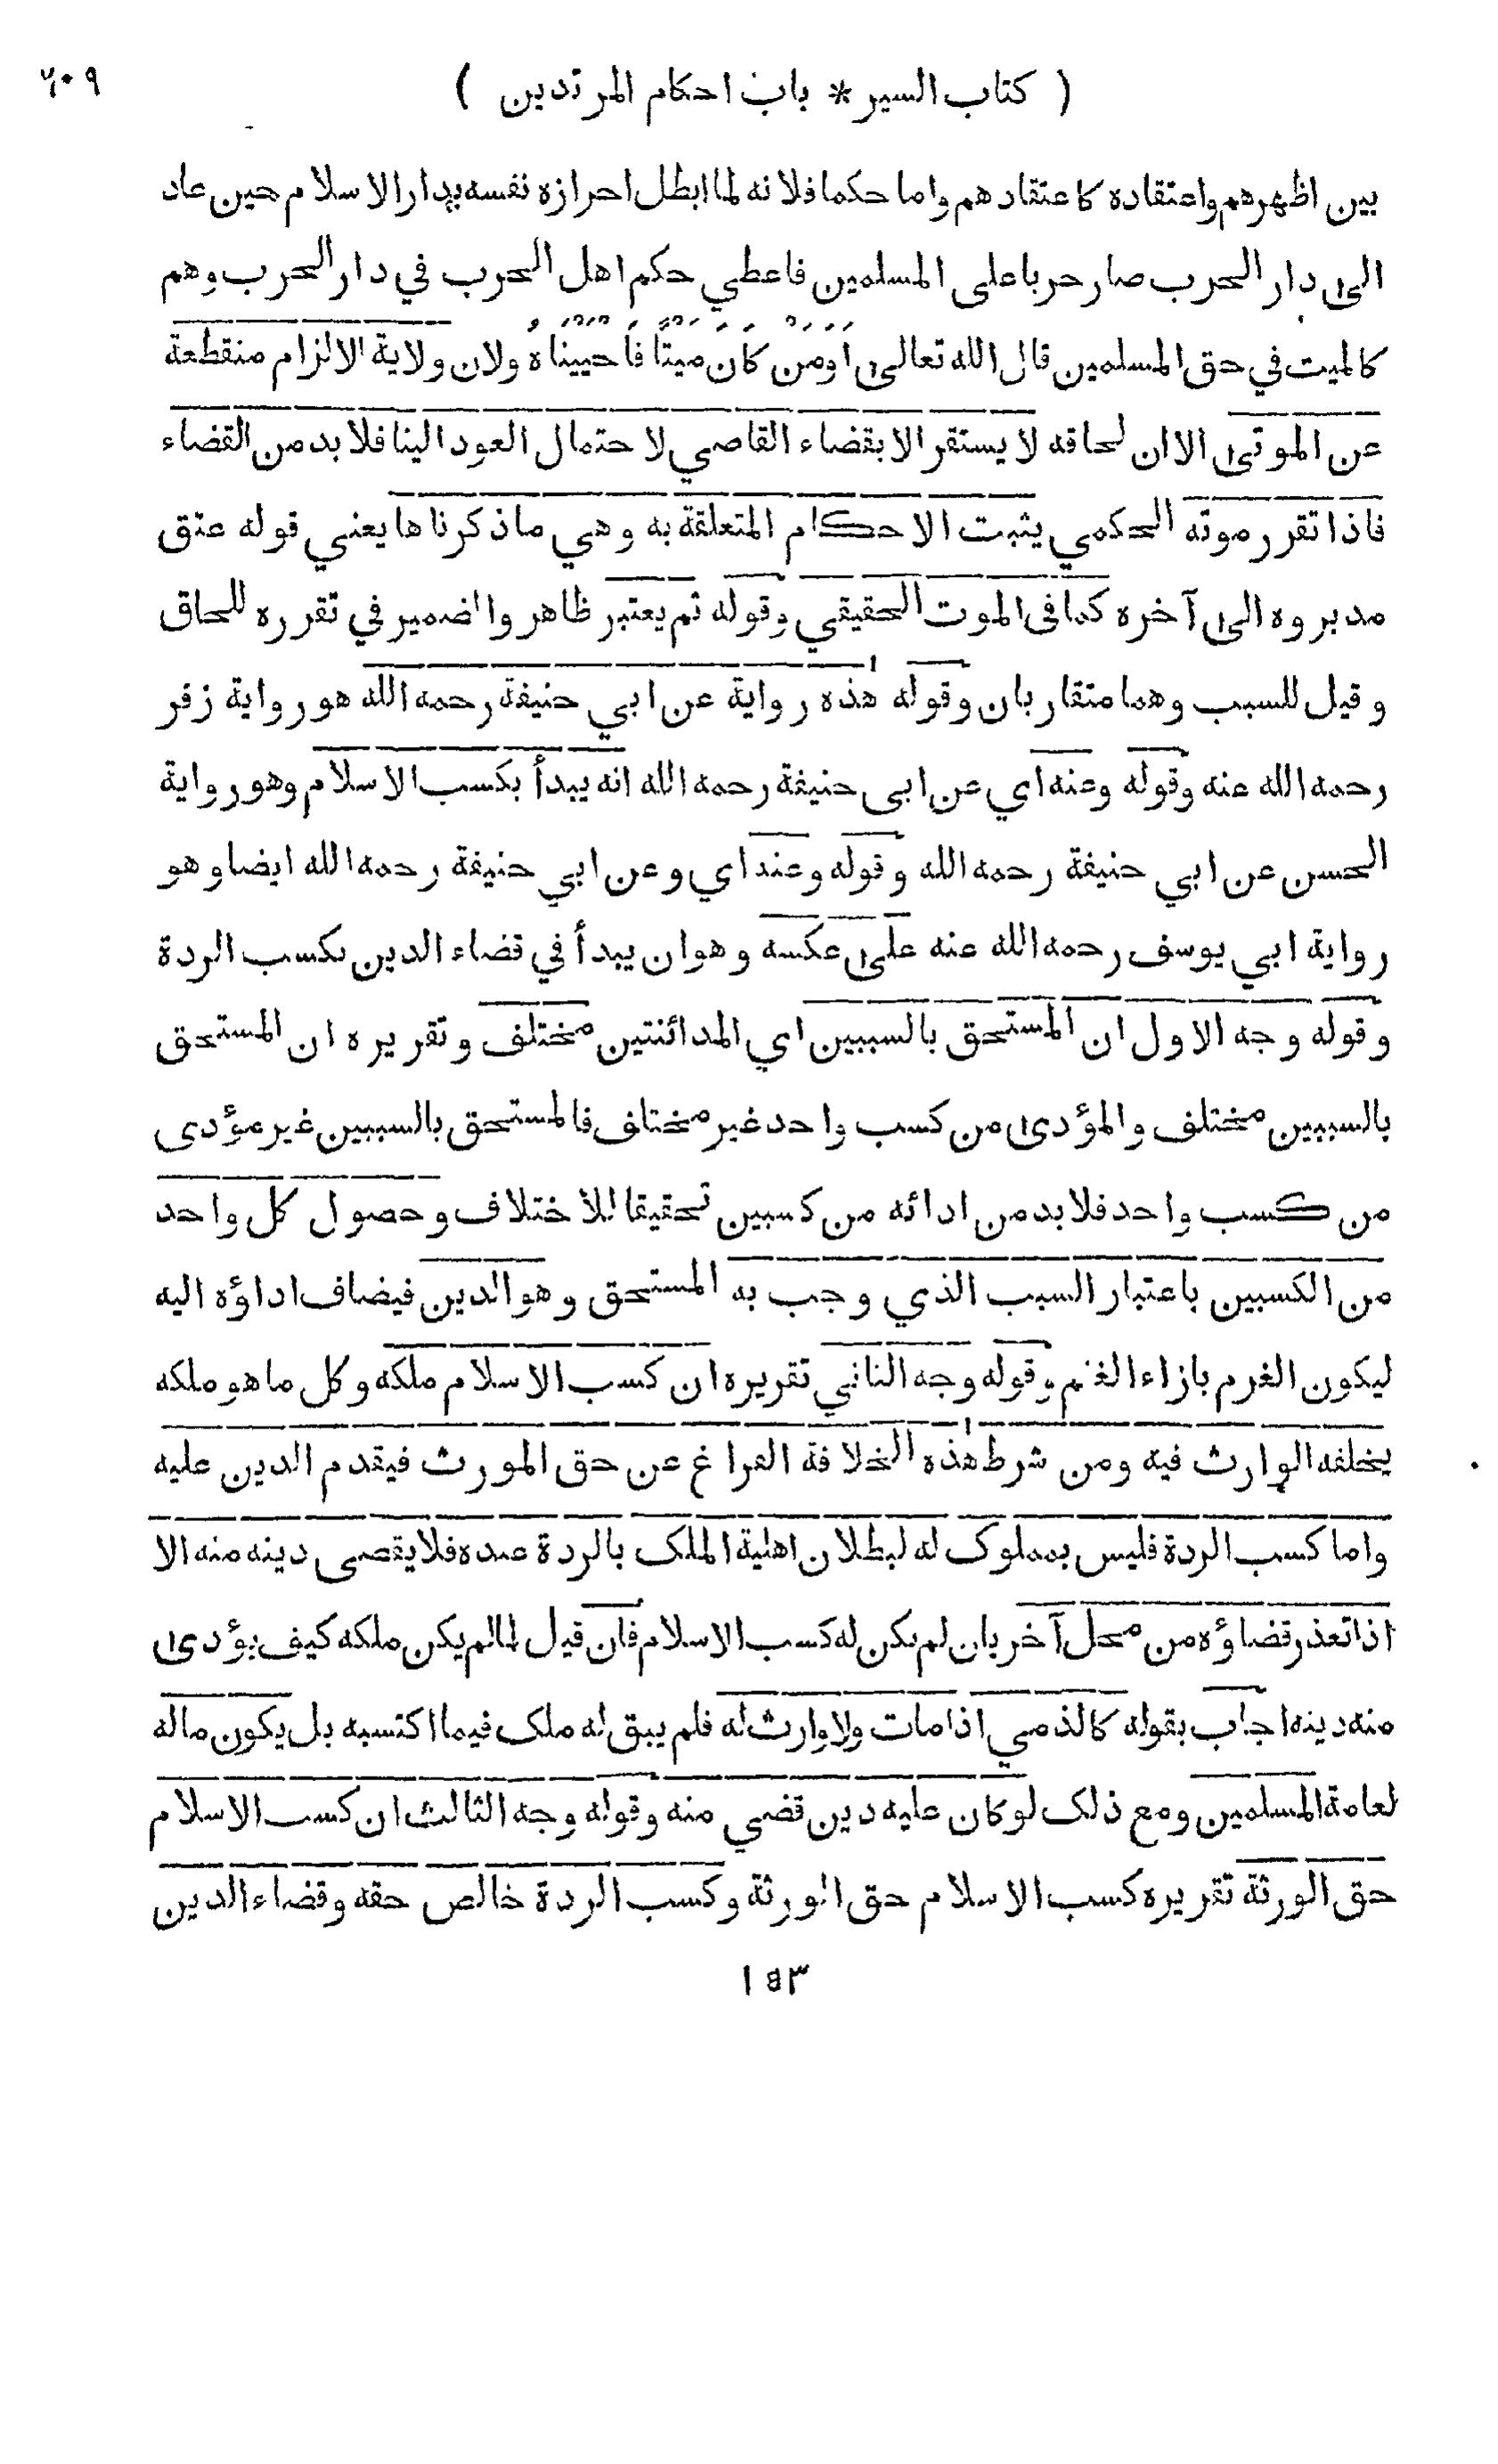 ( كتاب السير * باب احكام المرتدين ) ٦٠٩
بين اظهرهم واعتقاده كاعتقادهم واما حكما فلانه لما ابطل احرازه نفسه بدار الاسلام حين عاد
الى دار الحرب صار حربا على المسلمين فاعطي حكم اهل الحرب في دار الحرب وهم
كالميت في حق المسلمين قال الله تعالى أَوَمَنْ كَانَ مَيْتًا فَأَحْيَيْنَاهُ ولان ولاية الالزام منقطعة
عن الموتى الا ان لحاقه لا يستقر الا بقضاء القاضي لاحتمال العود الينا فلا بد من القضاء
فاذا تقرر موته الحكمي يثبت الاحكام المتعلقة به وهي ما ذكرناها يعني قوله عتق
مدبروه الى آخره كما فى الموت الحقيقي وقوله ثم يعتبر ظاهر والضمير في تقرره للحاق
وقيل للسبب وهما متقاربان وقوله هذه رواية عن ابي حنيفة رحمه الله هو رواية زفر
رحمه الله عنه وقوله وعنه اي عن ابى حنيفة رحمه الله انه يبدأ بكسب الاسلام وهو رواية
الحسن عن ابي حنيفة رحمه الله وقوله وعنه اي وعن ابي حنيفة رحمه الله ايضا وهو
رواية ابي يوسف رحمه الله عنه على عكسه وهو ان يبدأ في قضاء الدين بكسب الردة
وقوله وجه الاول ان المستحق بالسببين اي المدائنتين مختلف وتقريره ان المستحق
بالسببين مختلف والمؤدى من كسب واحد غير مختلف فالمستحق بالسببين غير مؤدى
من كسب واحد فلا بد من ادائه من كسبين تحقيقا للاختلاف وحصول كل واحد
من الكسبين باعتبار السبب الذي وجب به المستحق وهو الدين فيضاف اداؤه اليه
ليكون الغرم بازاء الغنم وقوله وجه الثاني تقريره ان كسب الاسلام ملكه وكل ما هو ملكه
يخلفه الوارث فيه ومن شرط هذه الخلافة الفراغ عن حق المورث فيقدم الدين عليه
واما كسب الردة فليس بمملوك له لبطلان اهلية الملك بالردة عنده فلا يقضى دينه منه الا
اذا تعذر قضاؤه من محل آخر بان لم يكن له كسب الاسلام فان قيل لما لم يكن ملكه كيف يؤدى
منه دينه اجاب بقوله كالذمي اذا مات ولا وارث له فلم يبق له ملك فيما اكتسبه بل يكون ماله
لعامة المسلمين ومع ذلك لو كان عليه دين قضي منه وقوله وجه الثالث ان كسب الاسلام
حق الورثة تقريره كسب الاسلام حق الورثة وكسب الردة خالص حقه وقضاء الدين
١٥٣